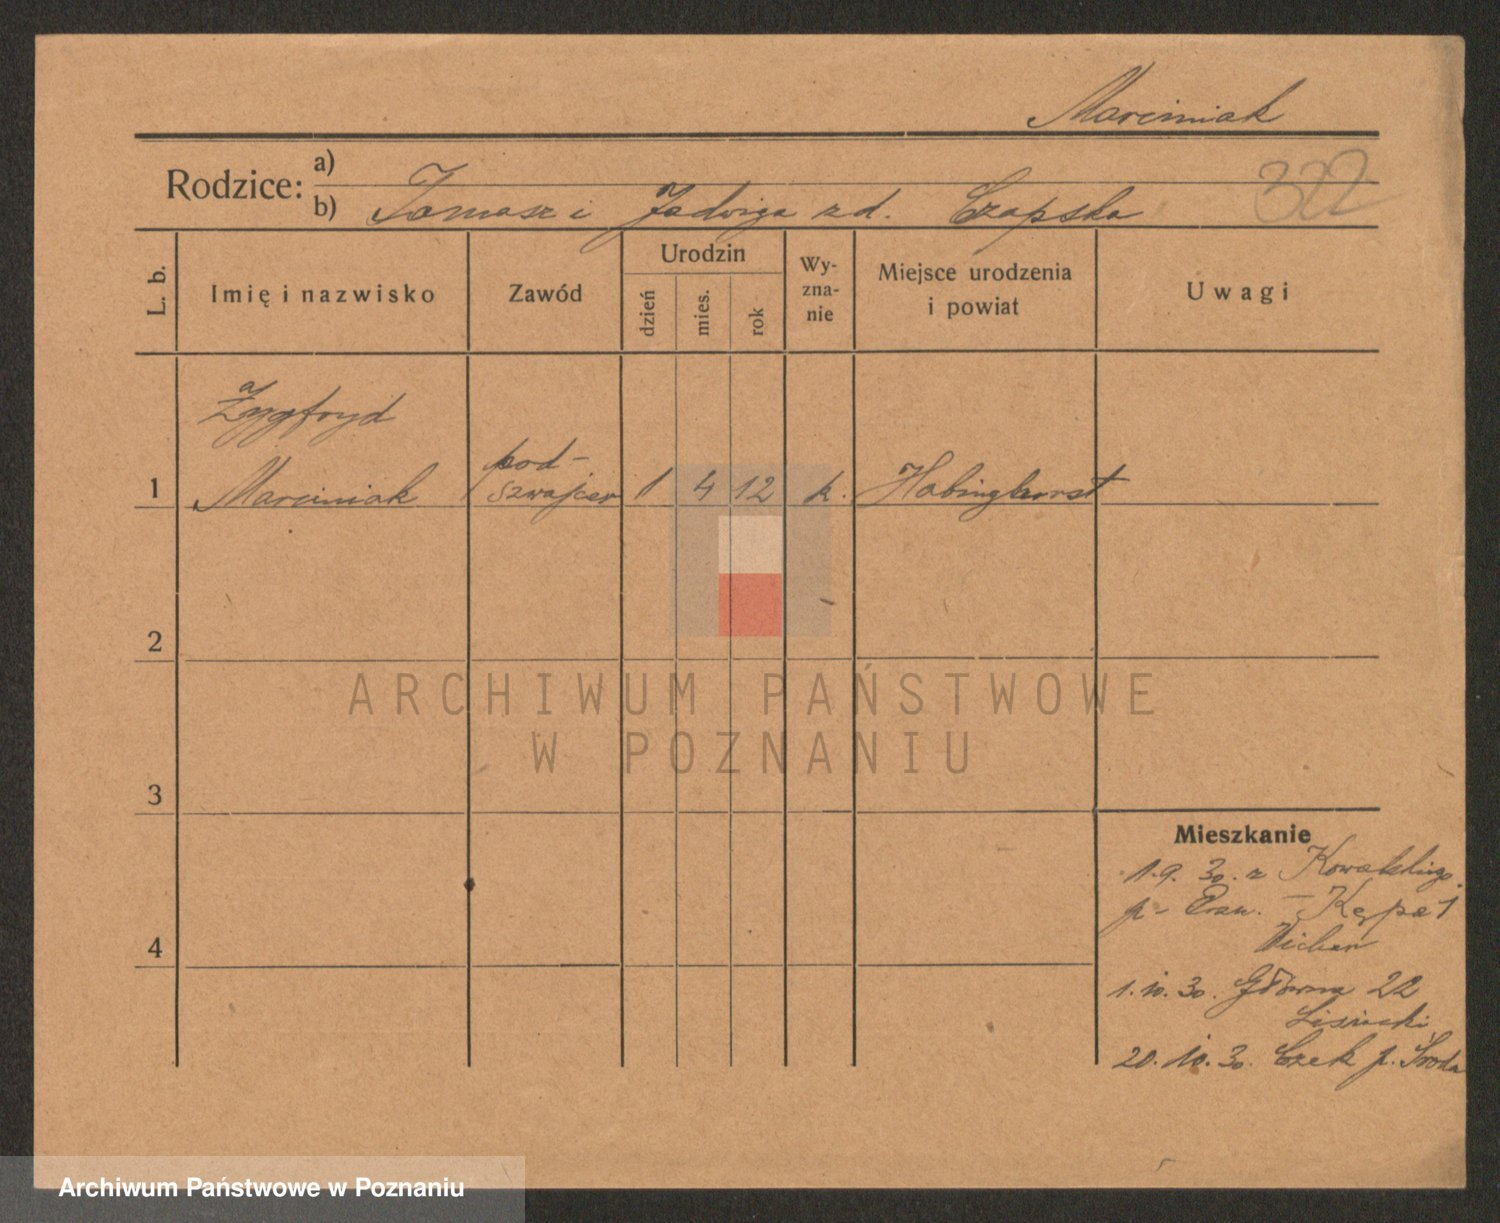 Marciniak
Rodzice: a)
322
b) Tomasz i Jadwiga zd. Czapska
L. b.
Imię i nazwisko
Zawód
Urodzin
dzień
mies.
rok
Wy-
zna-
nie
Miejsce urodzenia
i powiat
Uwagi
Zygfryd
pod-
1 Marciniak szwajcer 1 4 12 k. Habinghorst
2
ARCHIWUM PAŃSTWOWE
W POZNANIU
3
Mieszkanie
1.9.30. z
p- – Kępa 1
4
1.10.30. Główna 22
20.10.30. p. Środa
Archiwum Państwowe w Poznaniu